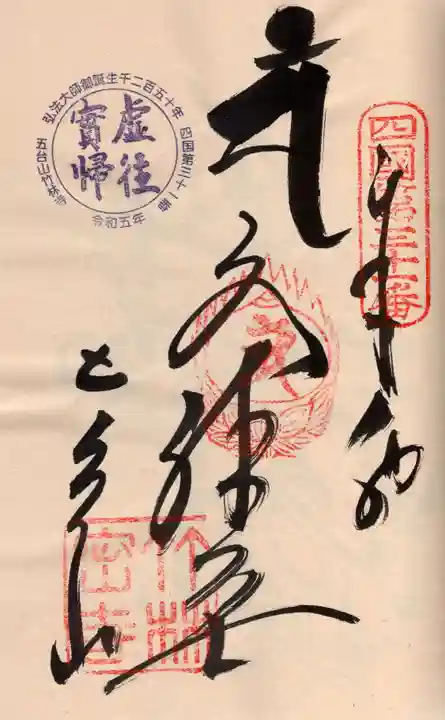 四国第三十一番
文殊堂
五台山
弘法大師御誕生千二百五十年
四国第三十一番
五台山竹林寺
令和五年
虚往
實帰
竹林